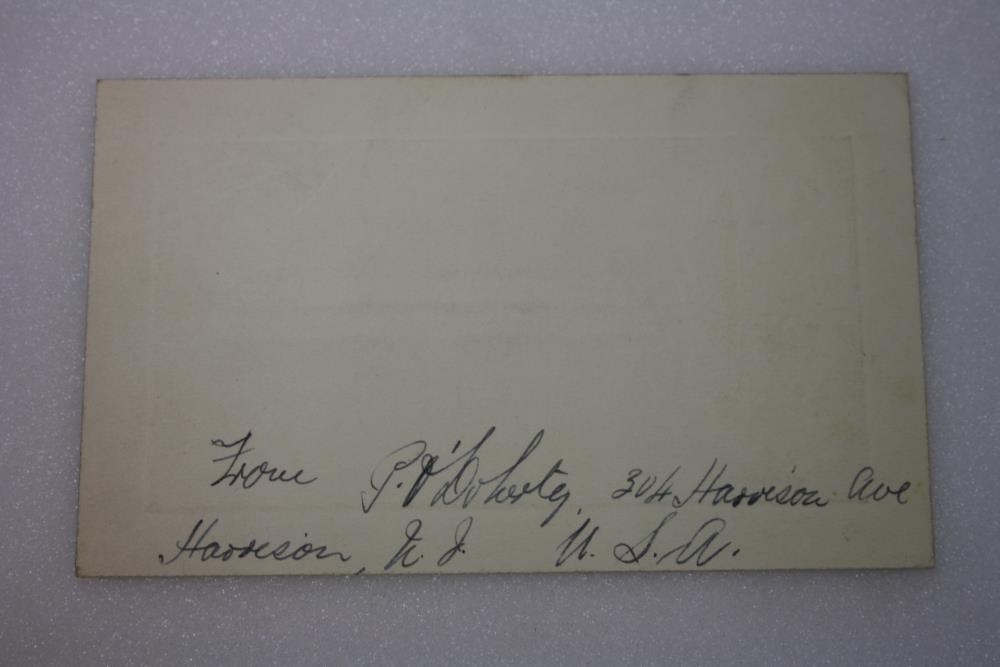 From P. O'Doherty, 304 Harrison Ave
Harrison, N. J. U. S. A.